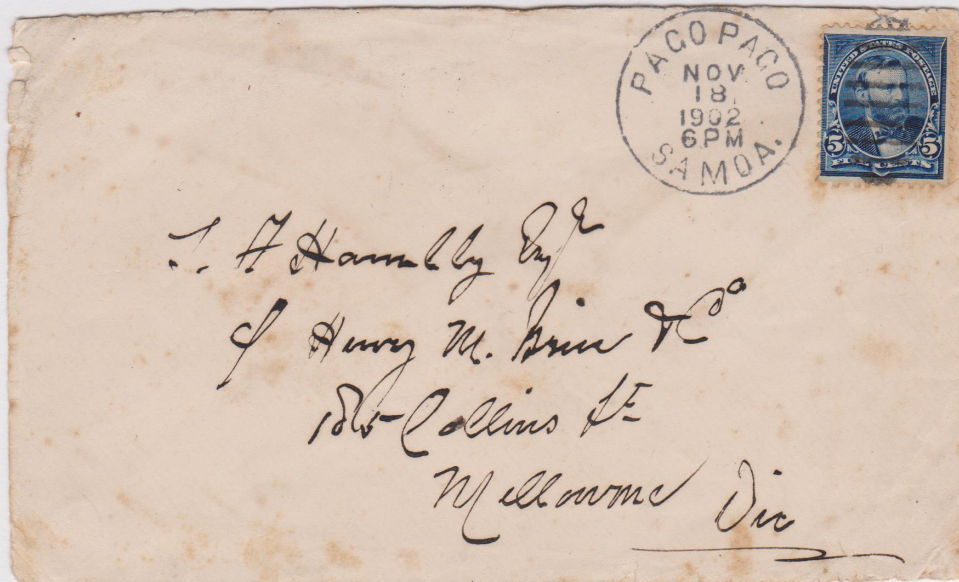 PAGO PAGO
NOV
18
1902
6PM
SAMOA.
UNITED STATES POSTAGE
5 5
FIVE CENTS
Hambly Esqr
c/ Henry M. &Co
Collins St
Melbourne Vic